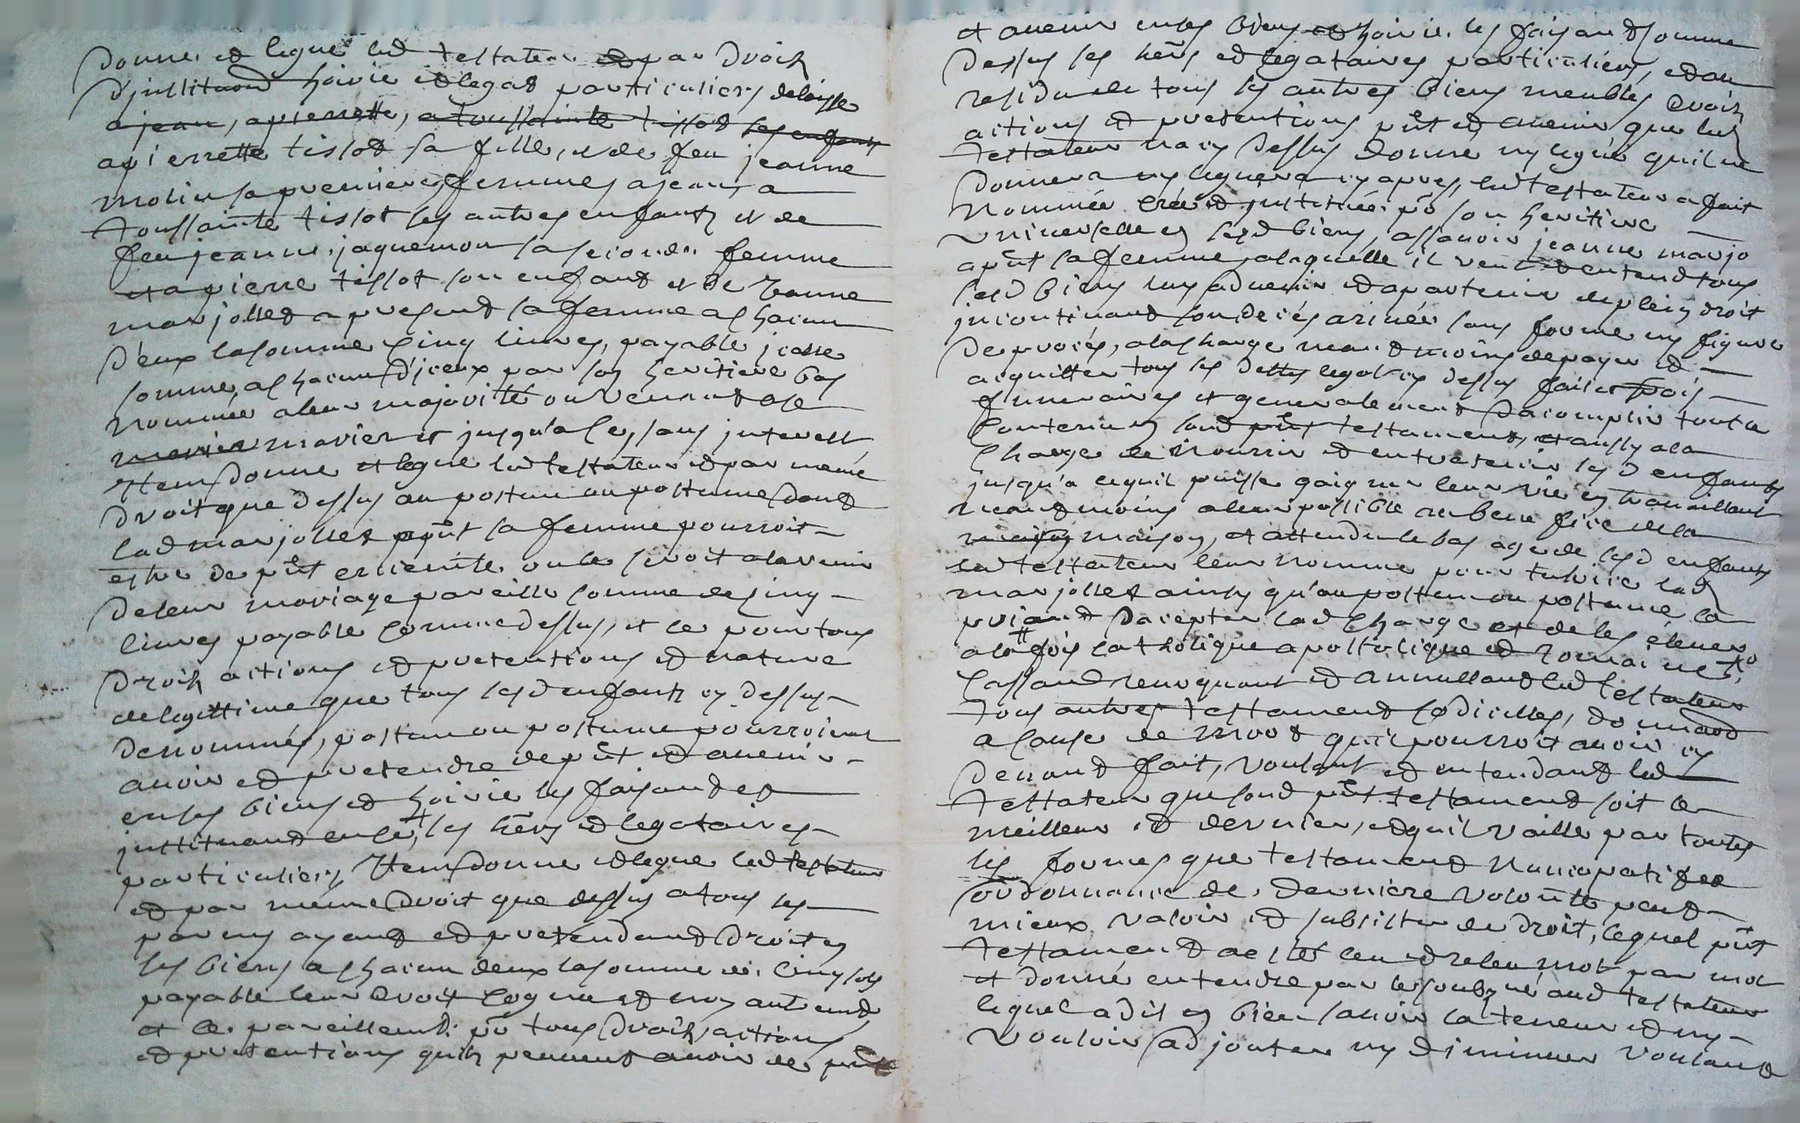 donne et legue led testateur et par droit
d'jnstitution hoirie et legat particuliers delaisse
a jean, a pierrette, a toussainte tissot ses enfans
a pierrette tissot sa fille, et de feu jeanne
molin sa premiere femme, a jean, a
toussainte tissot ses autres enfants et de
feu jeanne jaquemon sa seconde femme
et a pierre tissot son enfant et de
marjollet a present sa femme a chacun
d'eux la somme cinq livres, payable jcelle
somme, a chacun d'jceux par son heritiere bas
nommée a leur majorité ou venant a se
marier marier et jusqu'a ce, sans jnterest
Item donne et legue led testateur et par meme
droit que dessus au postum ou postume dont
lad marjollet pnt sa femme pourroit
estre de pnt enceinte ou le seroit a l'avenir
de leur mariage pareille somme de cinq
livres payable comme dessus, et ce pour tous
droits actions et pretentions et nature
de legittime que tous lesd enfants cy dessus
denommés, postum ou postume pourroient
avoir et pretendre de pnt et avenir
en ses biens et hoirie les faisant et
jnstituant en ce, ses hers et legataires
particuliers, Item donne et legue led testateur
et par meme droit que dessus a tous ses
parens ayant et pretendant droit en
ses biens a chacun deux la somme de cinq sols
payable leur droit cognu et non autrement
et ce pareillement po tous droits actions
et pretentions quils peuvent avoir de pnt
et avenir en ses biens et hoirie les faisant comme
dessus ses hers et legataires particuliers, et au
residu de tous ses autres biens meubles droits
actions et pretentions pnt et avenir que led
testateur na cy dessus donné ny legué qu'il ne
donnera ny leguera cy apres, led testateur a fait
nommée créé et jnstituée po son heritiere
universelle en sesd biens, assavoir jeanne marjo
a pnt sa femme, a laquelle il veut et entend tous
sesd biens luy advenir et apartenir de plein droit
jncontinant son decés arrivée sans forme ny figure
de procés, a la charge neantmoins de payer et
acquitter tous ses dettes legats cy dessus faits frais
funeraires et generalement d'acomplir tout le
contenu en sond pnt testament, et aussy a la
charge de nourrir et entretenir lesd enfants
jusqu'a ce quil puisse gaigner leur vie en travaillant
neantmoins a leur possible au benefice de la
maison maison, et attendu le bas age de sesd enfants
led testateur leur nomme pour tutrice lad
marjollet ainsy qu'au postum ou postume la
priant d'accepter lad charge et de les élever
a la foy catholique apostolique et romaine
cassant revoquant et annullant led testateur
tous autres testament codicilles, donnaod
a cause de mort qu'il pourroit avoir cy
devant fait, voulant et entendant led
testateur que sond pnt testament soit le
meilleur et dernier, et qu'il vaille par toutes
les formes que testament nuncupatif et
ordonnance de derniere volonte peut
mieux valoir et subsister de droit, lequel pnt
testament a esté leu et releu mot par mot
et donné entendre par le soubsigné aud testateur
lequel a dit en bien savoir la teneur et ny
vouloir adjouter ny diminuer voulant